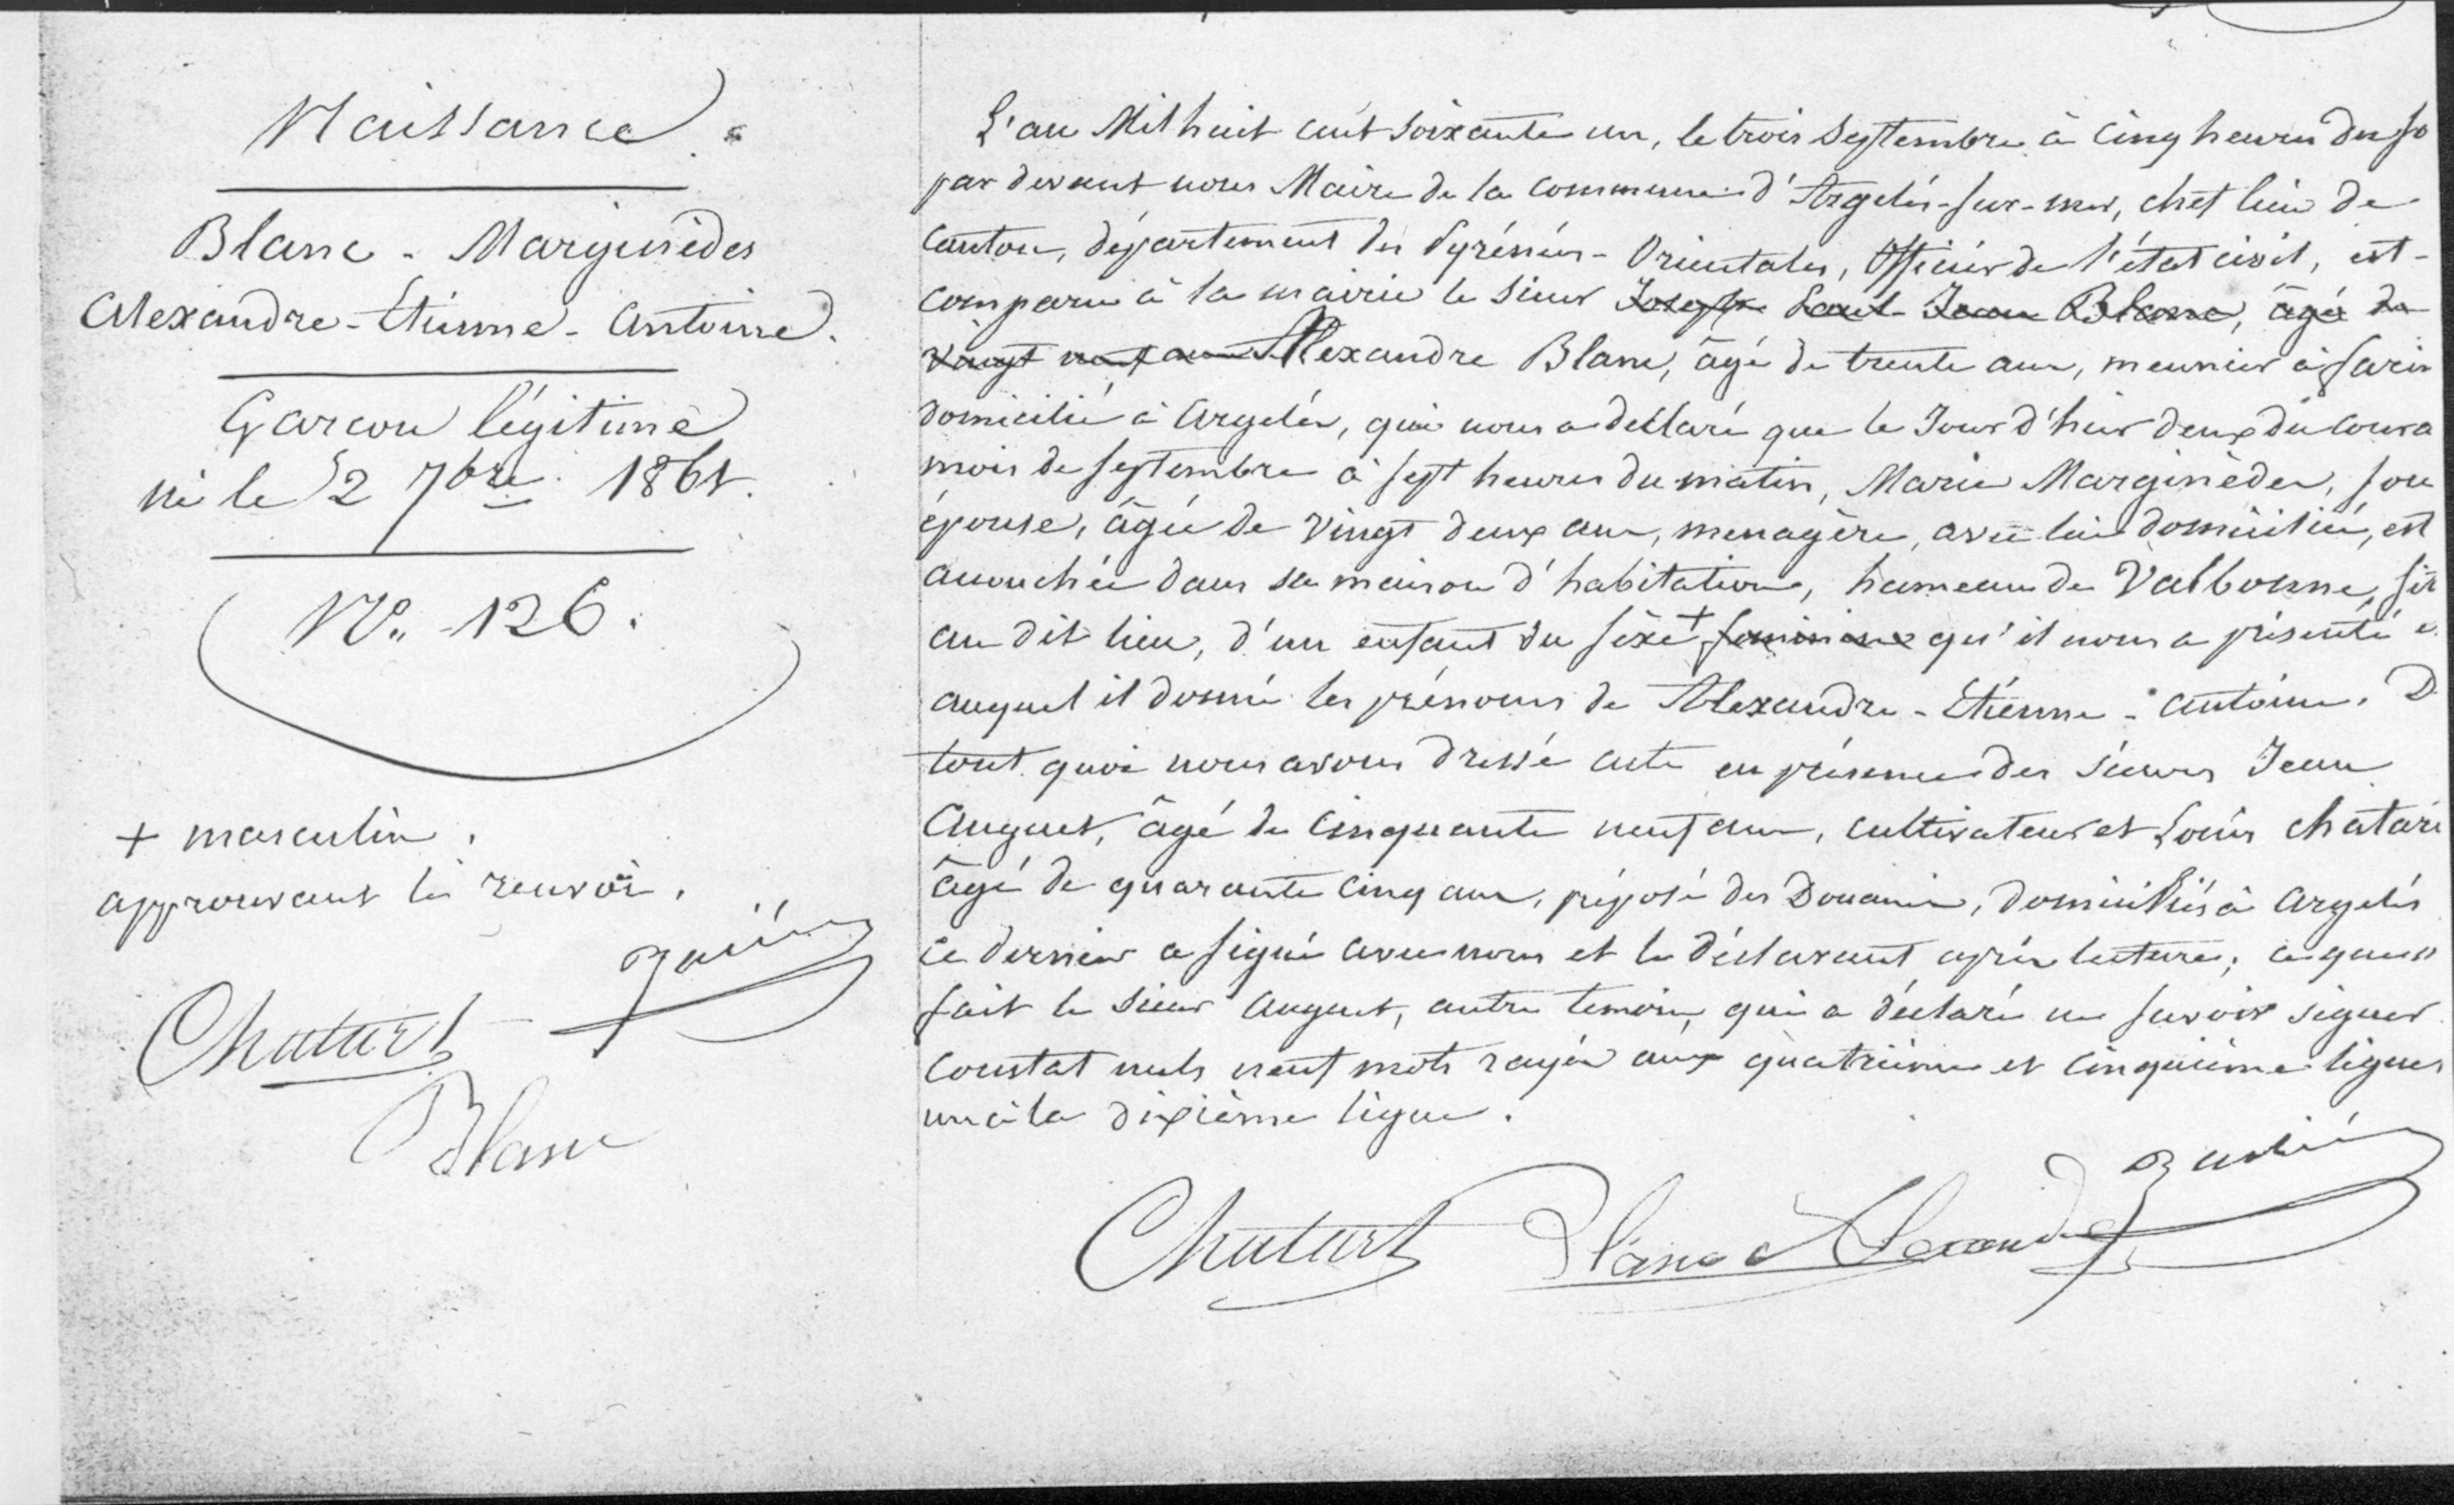 Naissance.
Blanc - Marginèdes
Alexandre - Etienne - Antoine.
Garcon légitime
né le 2 7bre 1861.
No. - 126.
+ masculin.
approuvant le renvoi.
Chatart
Blanc
L'an Mil huit cent soixante un, le trois Septembre à cinq heures du so
par devant nous Maire de la commune d'Argelès-sur-mer, chef lieu de
Canton, département des Pyrénées-Orientales, Officier de l'état civil, est-
comparu à la mairie le sieur Joseph Paul Jean Blanc, âgé de
vingt neuf ans Alexandre Blanc, âgé de trente ans, meunier à farin
domicilié à Argelès, qui nous a déclaré que le Jour d'hier deux du coura
mois de septembre à sept heures du matin, Marie Marginèdes, son
épouse, âgée de vingt deux ans, menagère, avec lui domiciliée, est
accouchée dans sa maison d'habitation, hameau de Valbonne, sis
au dit lieu, d'un enfant du sexe + feminin qu'il nous a présenté e
auquel il donné les prénoms de Alexandre - Etienne - Antoine. D
tout quoi nous avons dressé acte en présence des sieurs Jean
Auguet, âgé de cinquante neuf ans, cultivateur et Louis chatar
âgé de quarante cinq ans, préposé des Douanes, domiciliés à Argelès
ce dernier a signé avec nous et le déclarant après lecture; ce que n'
fait le sieur Auguet, autre temoin, qui a déclaré ne savoir signer
constat nuls neuf mots rayés aux quatrième et cinquième lignes
un à la dixième ligne.
Chatart Blanc Alexandre